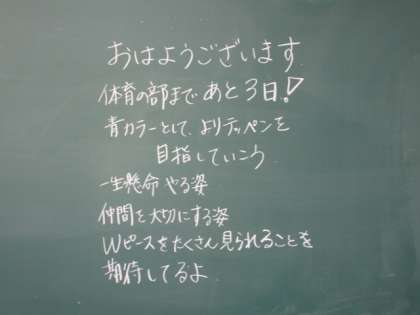 おはようございます
体育の部まであと3日!
青カラーとして、よりテッペンを
目指していこう
一生懸命やる姿
仲間を大切にする姿
Wピースをたくさん見られることを
期待してるよ